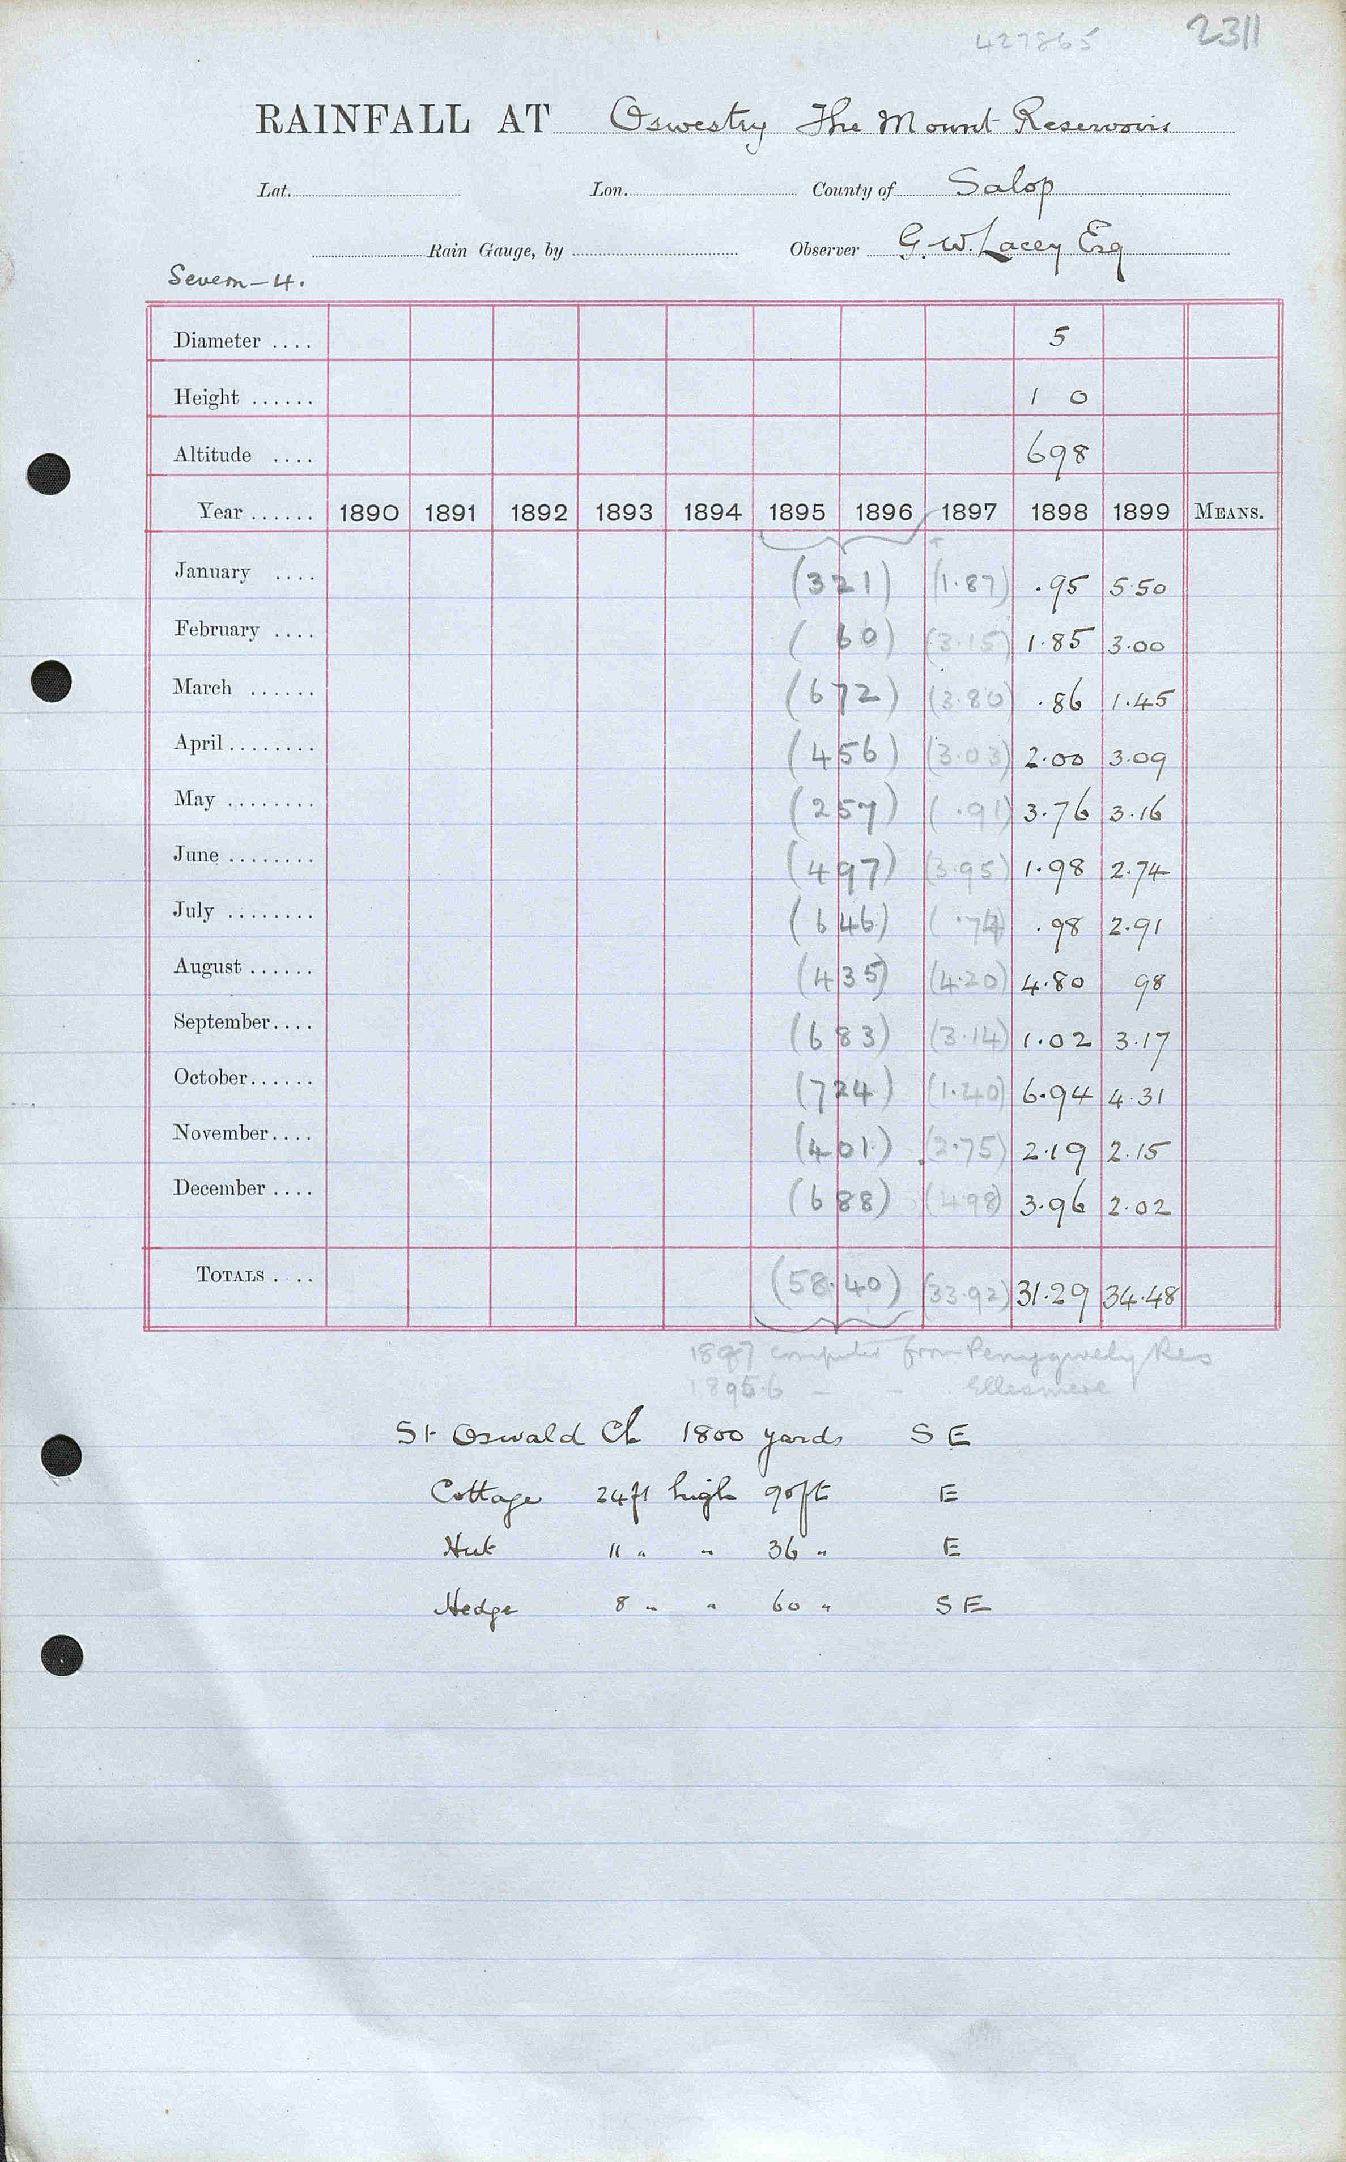 427865 2311
RAINFALL AT Oswestry The Mount Reservoir
Lat. Lon. County of Salop
Rain Gauge, by Observer G. W. Lacey Esq
Severn - 4.
Diameter .... 5
Height ...... 1 0
Altitude .... 698
Year ...... 1890 1891 1892 1893 1894 1895 1896 1897 1898 1899 MEANS.
January .... (321) (1.87) .95 5.50
February .... ( 60) (3.15) 1.85 3.00
March ...... (672) (3.80) .86 1.45
April ........ (456) (3.03) 2.00 3.09
May ........ (257) ( .91) 3.76 3.16
June ........ (497) (3.95) 1.98 2.74
July ........ (646) .98 2.91
August ...... (435) (4.20) 4.80 98
September.... (683) (3.14) 1.02 3.17
October...... (724) (1.40) 6.94 4.31
November.... (401) (2.75) 2.19 2.15
December .... (688) (4.98) 3.96 2.02
TOTALS .... (58.40) (33.92) 31.29 34.48
1897 computed from Penygwely Res
1895.6 - - Ellesmere
St Oswald Ch 1800 yards S E
Cottage 24ft high 90ft E
Hut 11 " " 36 " E
Hedge 8 " " 60 " S E